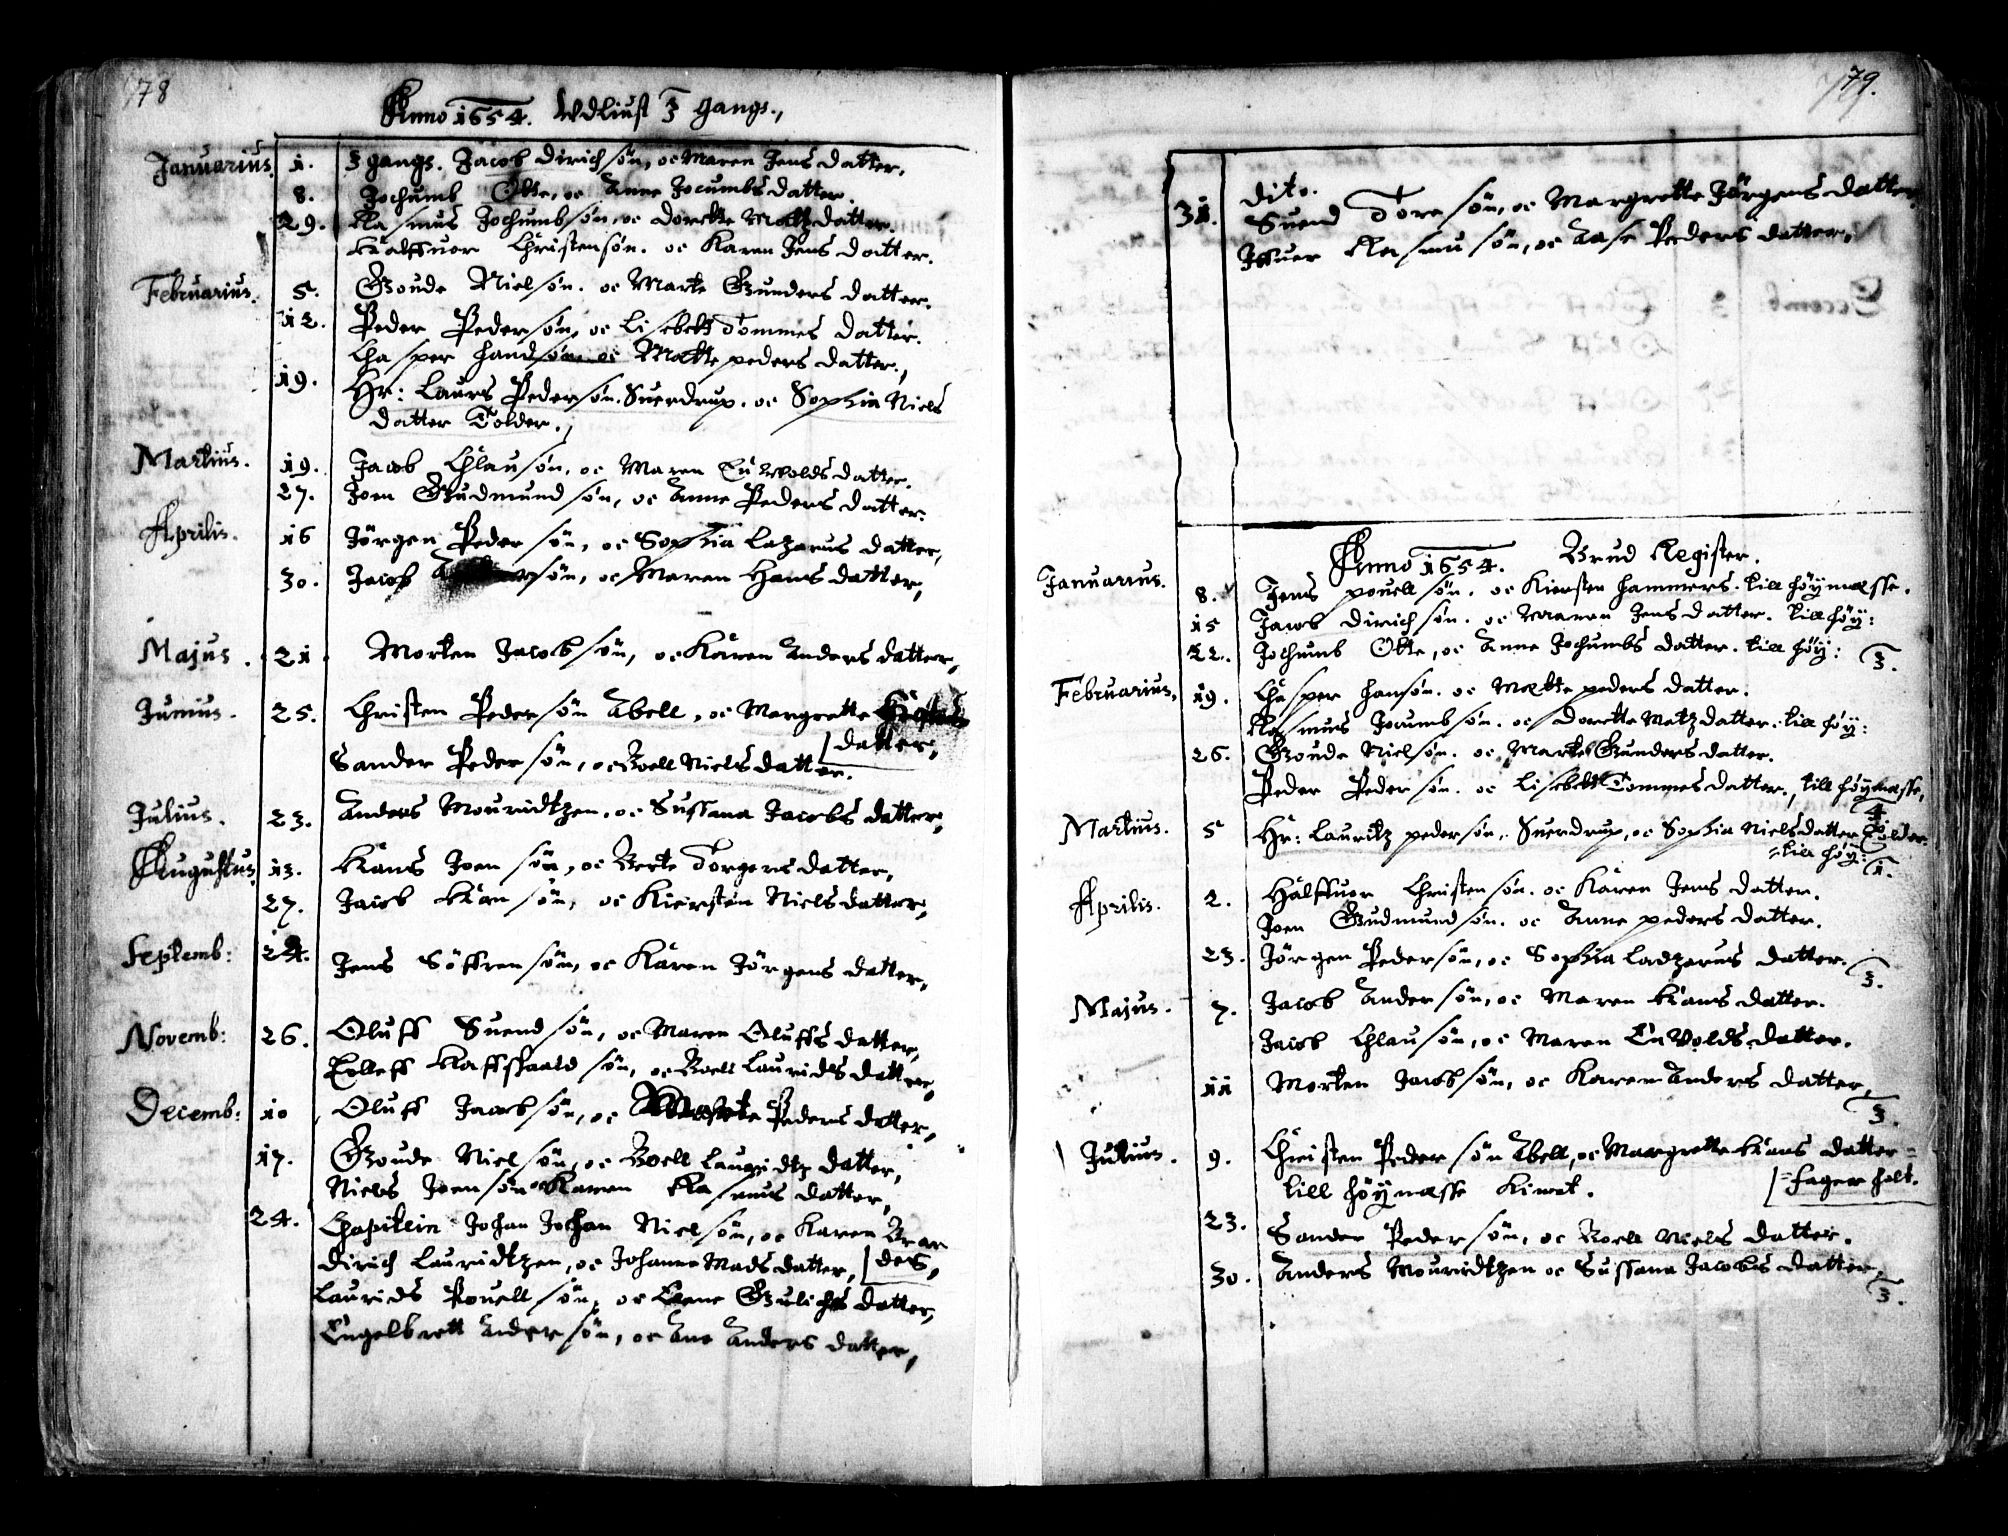 78
Anno 1654. Wdliust 3 gangs.,
Januarius 1. 3 gangs. Jacob Dirichsøn, oc Maren Jens datter.
8. Jochumb Otte, oc Anne Jocumbs datter.
29. Rasmus Jochumbsøn, oc Dorette Matz datter.
Halffuor Christensøn. oc Karen Jens datter.
Februarius. 5. Goude Nielsøn. oc Marte Gunders datter.
12. Peder Pedersøn, oc Lisebett Tommes datter.
Chasper Handsøn oc Mette peders datter.,
19. Hr: Laurs Pedersøn. Suerdrup. oc Sophia Niels
datter Tolder.,
Martius. 19. Jacob Chlausøn, oc Maren Enwolds datter.
27. Joen Gudmundsøn, oc Anne Peders datter.
Aprilis. 16 Jörgen Pedersøn, oc Sophia Lazarus datter,
30. Jacob søn, oc Maren Hans datter,
Majus. 21. Morten Jacobsøn, oc Karen Anders datter,
Junius. 25. Christen Pedersøn Abell, oc Margrette
datter,
Sander Pedersøn, oc Boell Niels datter.
Julius. 23. Anders Mouridtzen, oc Sussana Jacobs datter,
Augustus 13. Hans Joensøn, oc Berte Torgers datter,
27. Jacob Hansøn, oc Kiersten Niels datter,
Septemb: 24. Jens Söffrensøn, oc Karen Jörgens datter,
Novemb: 26. Oluff Suendsøn, oc Maren Oluffs datter,
Eolleff Haffskaaldsøn, oc Boell Laurids datter,
Decemb: 10 Oluff Jacobsøn, oc Peders datter,
17. Goude Nielsøn, oc Boell Lauridtz datter,
Niels Joensøn oc Karen Rasmus datter,
24. Chapitein Johan Johan Nielsøn, oc Karen Bran
des,
Dirich Lauridtzen, oc Johanne Mads datter,
Laurids Pouellsøn, oc Lene Gulichs datter,
Engelbrett Andersøn, oc Ane Anders datter,
79.
31. dito.
Suend Toresøn, oc Margrette Jörgens datter,
Jffuer Rasmusøn, oc Aase Peders datter,
Anno 1654. Brud Register.
Januarius. 8. Jens pouellsøn. oc Kiersten Hammers. till höymesse.
15 Jacob Dirichsøn. oc Maren Jens datter. till höy:
22. Jochumb Otte, oc Anne Jochumbs datter. till höy: 3.
Februarius, 19. Chasper Hansøn. oc Mette peders datter.
Rasmus Jocumbsøn. oc Dorette Metz datter. till höy:
26. Goude Nielsøn. oc Marte Gunders datter.
Peder Pedersøn. oc Lisebett Tommes datter., till höymesse,
4.
Martius. 5 Hr: Lauritz pedersøn. Suerdrup, oc Sophia Niels datter Tolder.
till höy: 1.
Aprilis. 2. Halffuor Christensøn. oc Karen Jens datter.
Joen Gudmundsøn. oc Anne peders datter.
23. Jörgen Pedersøn, oc Sophia Ladzarus datter. 3.
Majus. 7. Jacob Andersøn, oc Maren Hans datter.
Jacob Chlausøn, oc Maren Enwolds datter.
11 Morten Jacobsøn, oc Karen Anders datter,
3.
Julius. 9. Christen Pedersøn Abell, oc Margrette Hans datter =
till höymesse = Fagerholt.
23. Sander Pedersøn, oc Boell Niels datter.
30. Anders Mouridtzen oc Sussana Jacobs datter,
3.